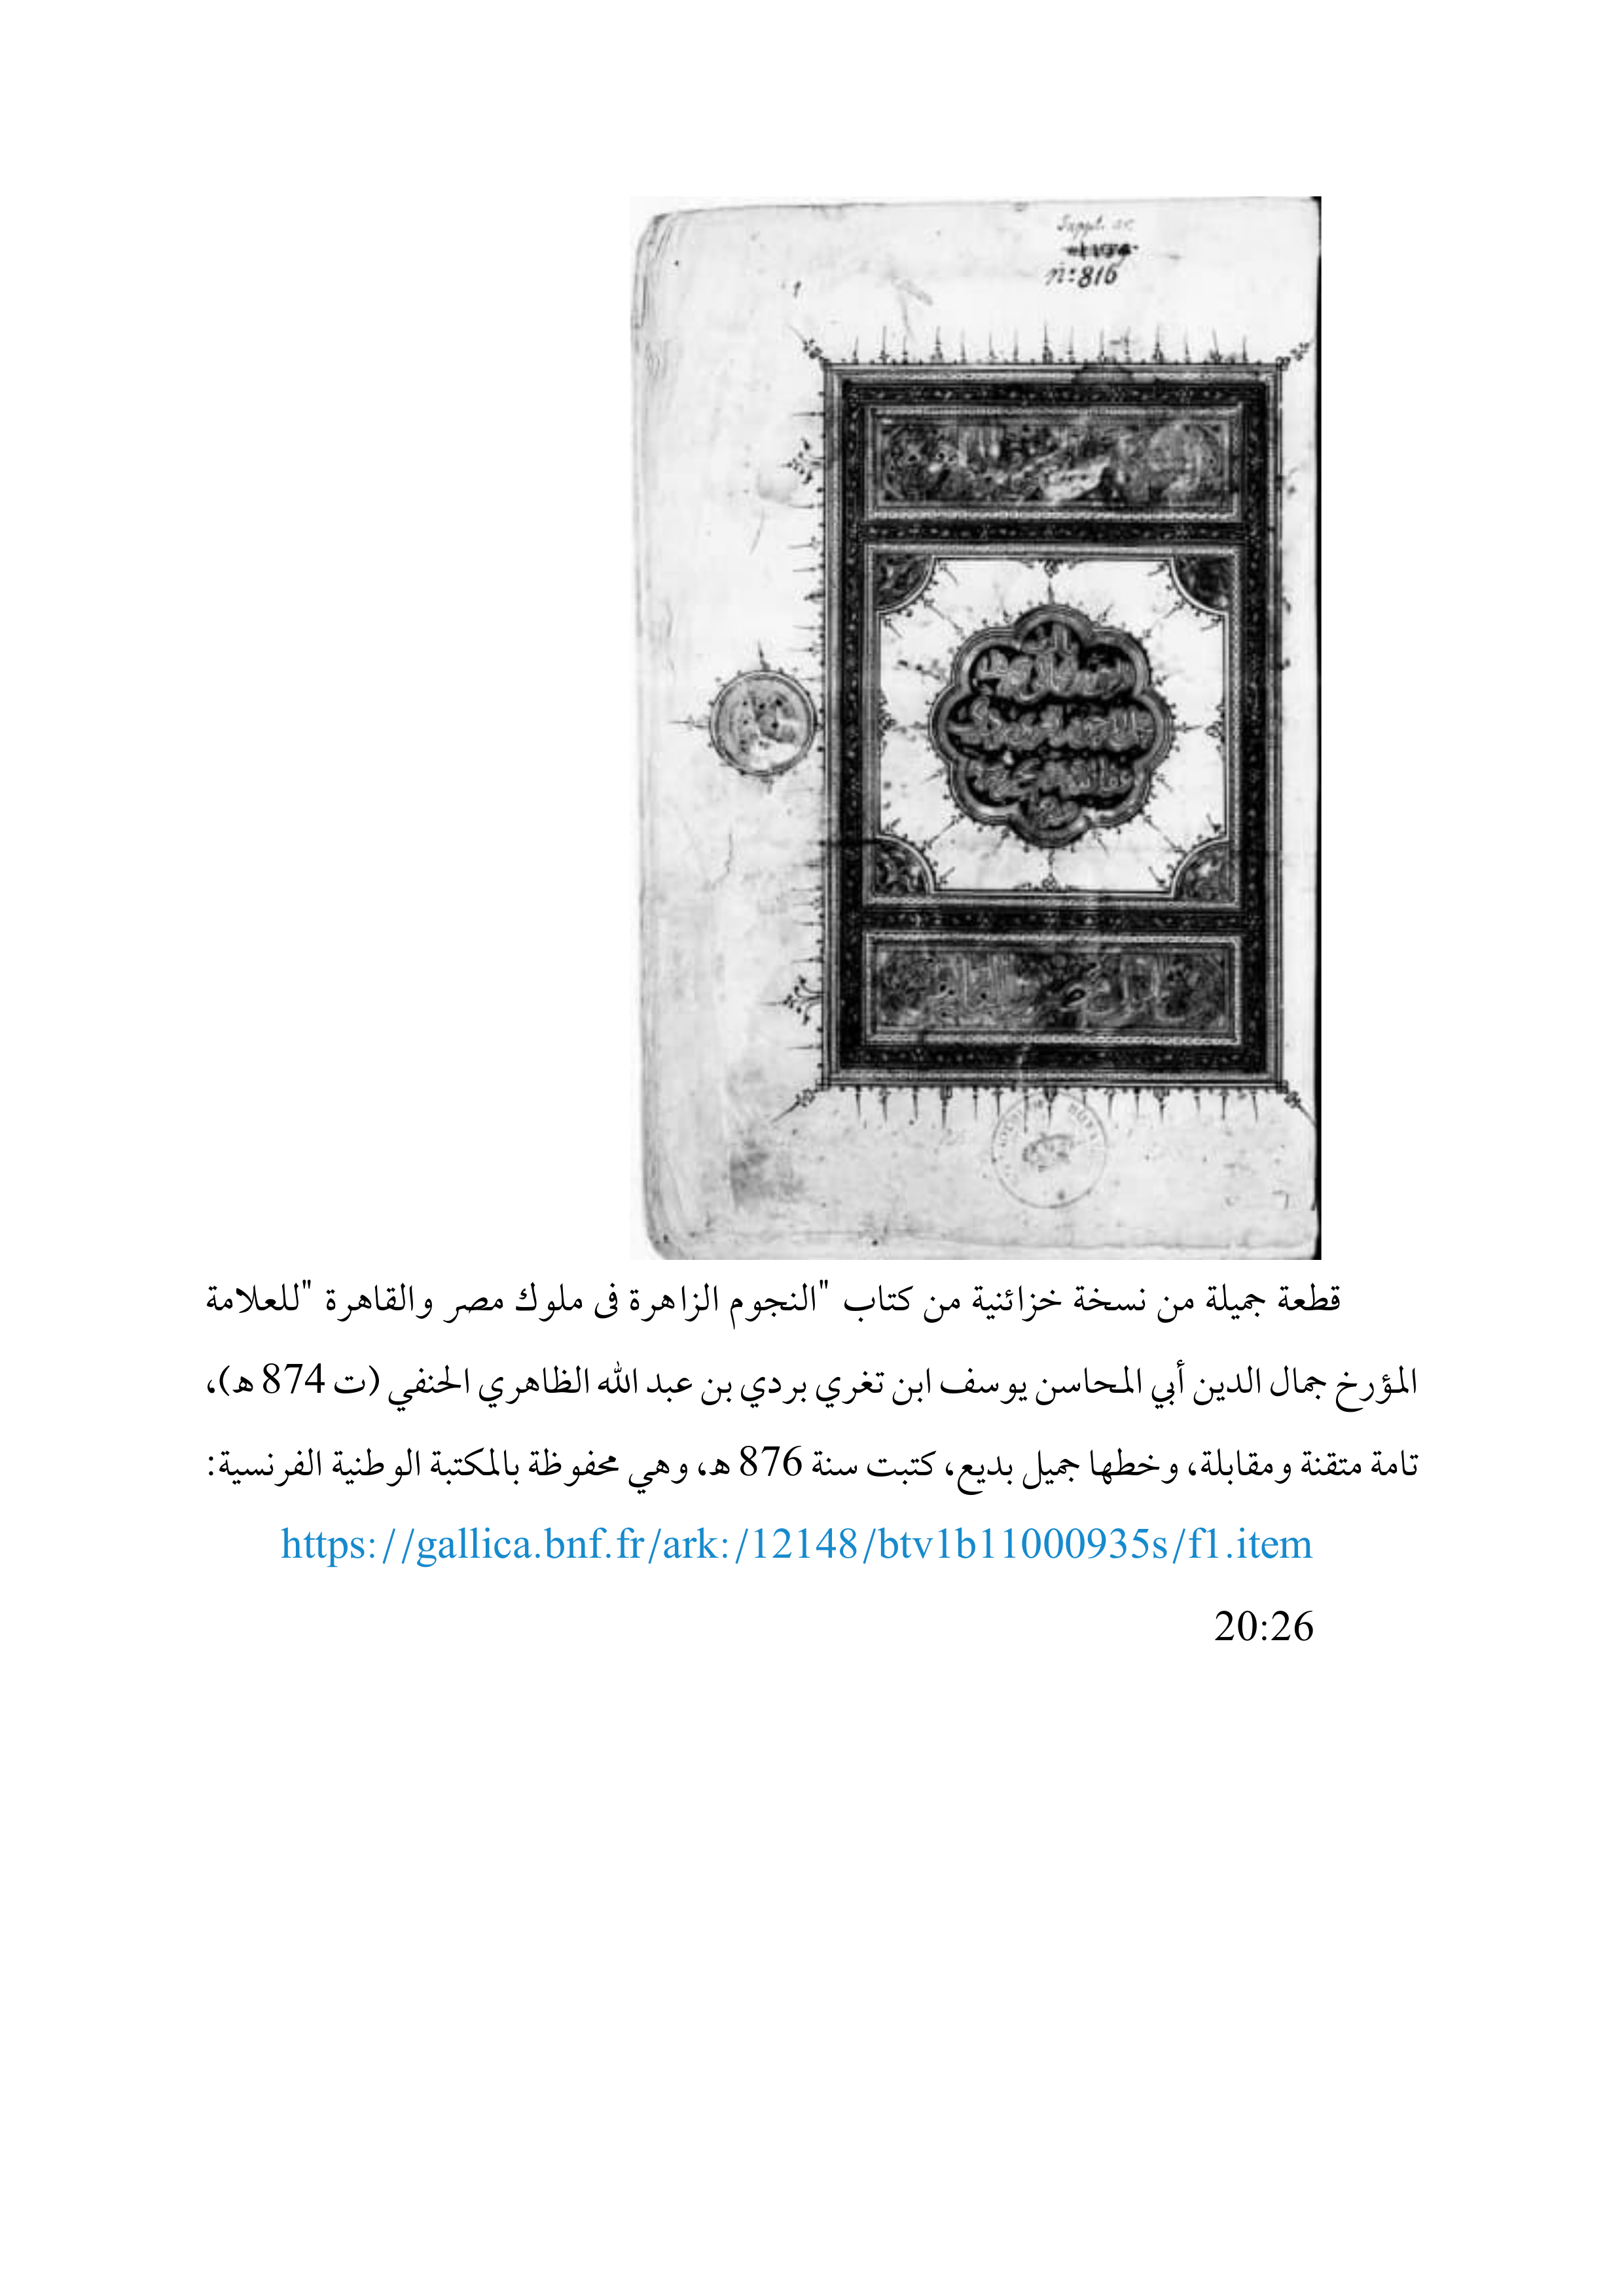 Suppl. ar.
n: 816
قطعة جميلة من نسخة خزائنية من كتاب "النجوم الزاهرة فى ملوك مصر والقاهرة "للعلامة
المؤرخ جمال الدين أبي المحاسن يوسف ابن تغري بردي بن عبد الله الظاهري الحنفي (ت 874 ه)،
تامة متقنة ومقابلة، وخطها جميل بديع، كتبت سنة 876 ه، وهي محفوظة بالمكتبة الوطنية الفرنسية:
https://gallica.bnf.fr/ark:/12148/btv1b11000935s/f1.item
20:26